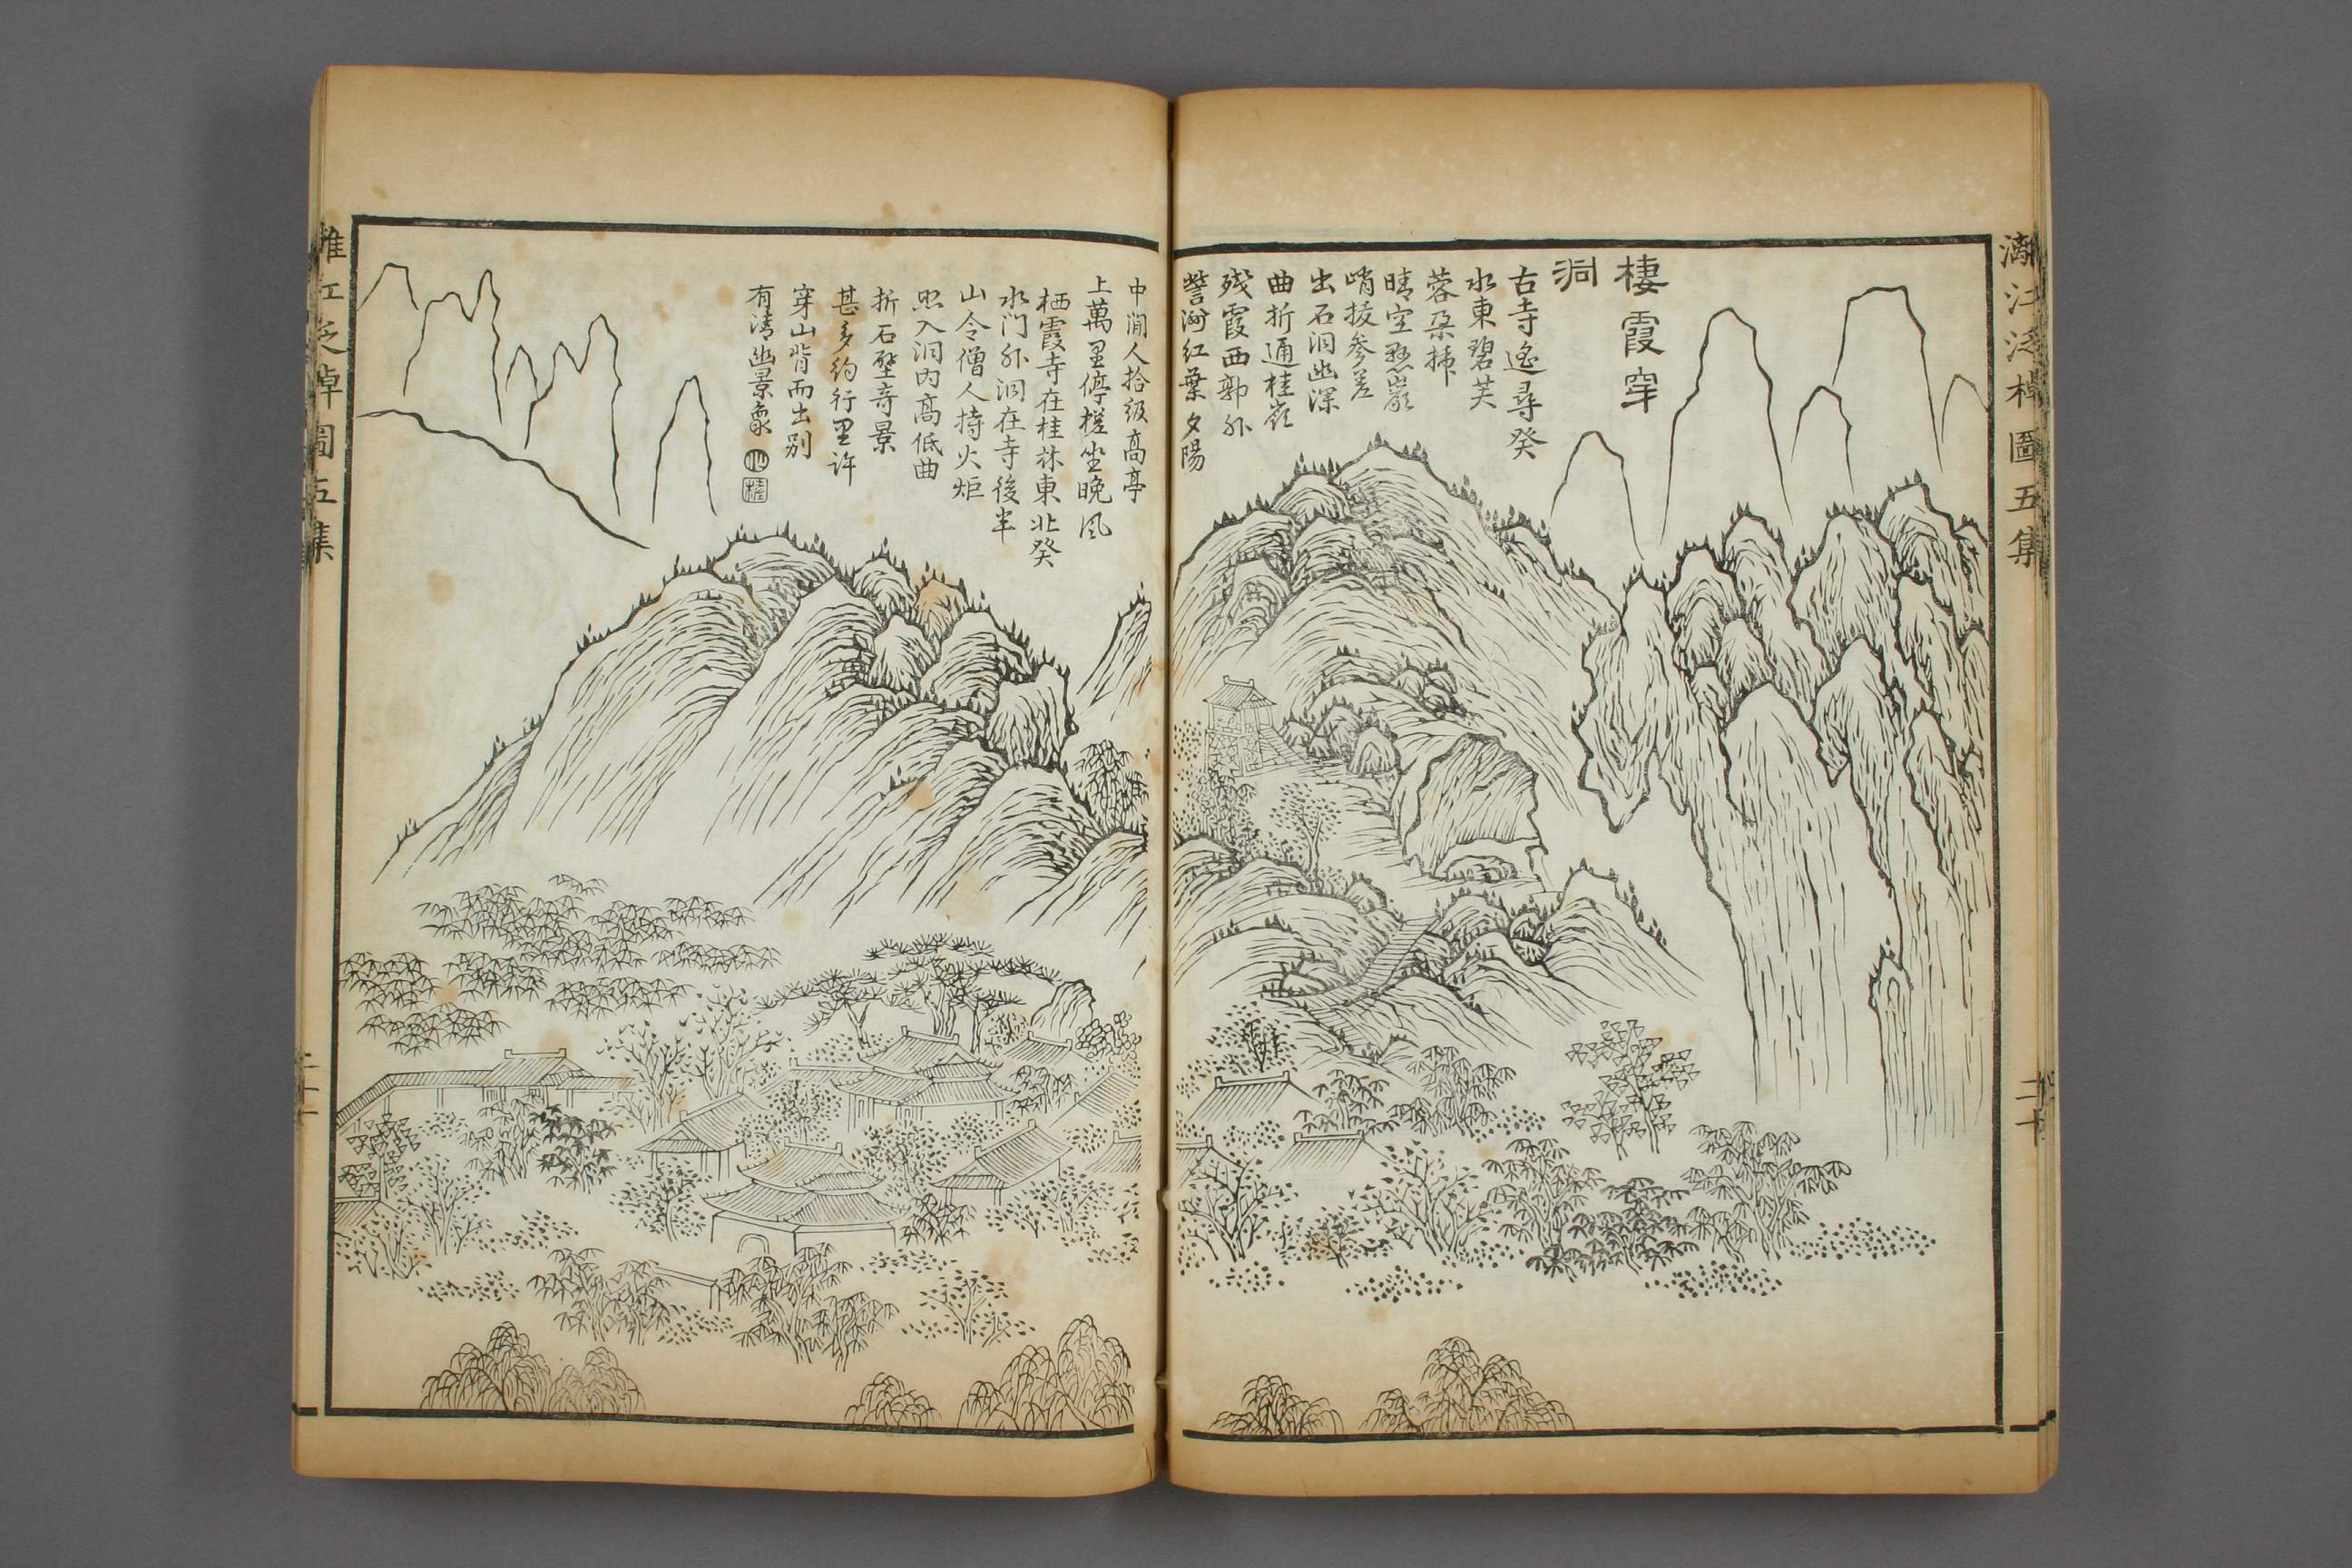 漓江泛棹圖五集
二十
棲霞穿
洞
古寺遙尋癸
水東碧芙
蓉朶掃
晴空懸巖
峭拔參差
出石洞幽深
曲折通桂嶺
殘霞西郭外
紅葉夕陽
中澗人拾級高亭
上萬里停槎坐晚風
栖霞寺在桂林東北癸
水門外洞在寺後半
山令僧人持火炬
照入洞內高低曲
折石壁奇景
甚多約行里許
穿山背而出别
有清幽景象
江泛棹圖五集